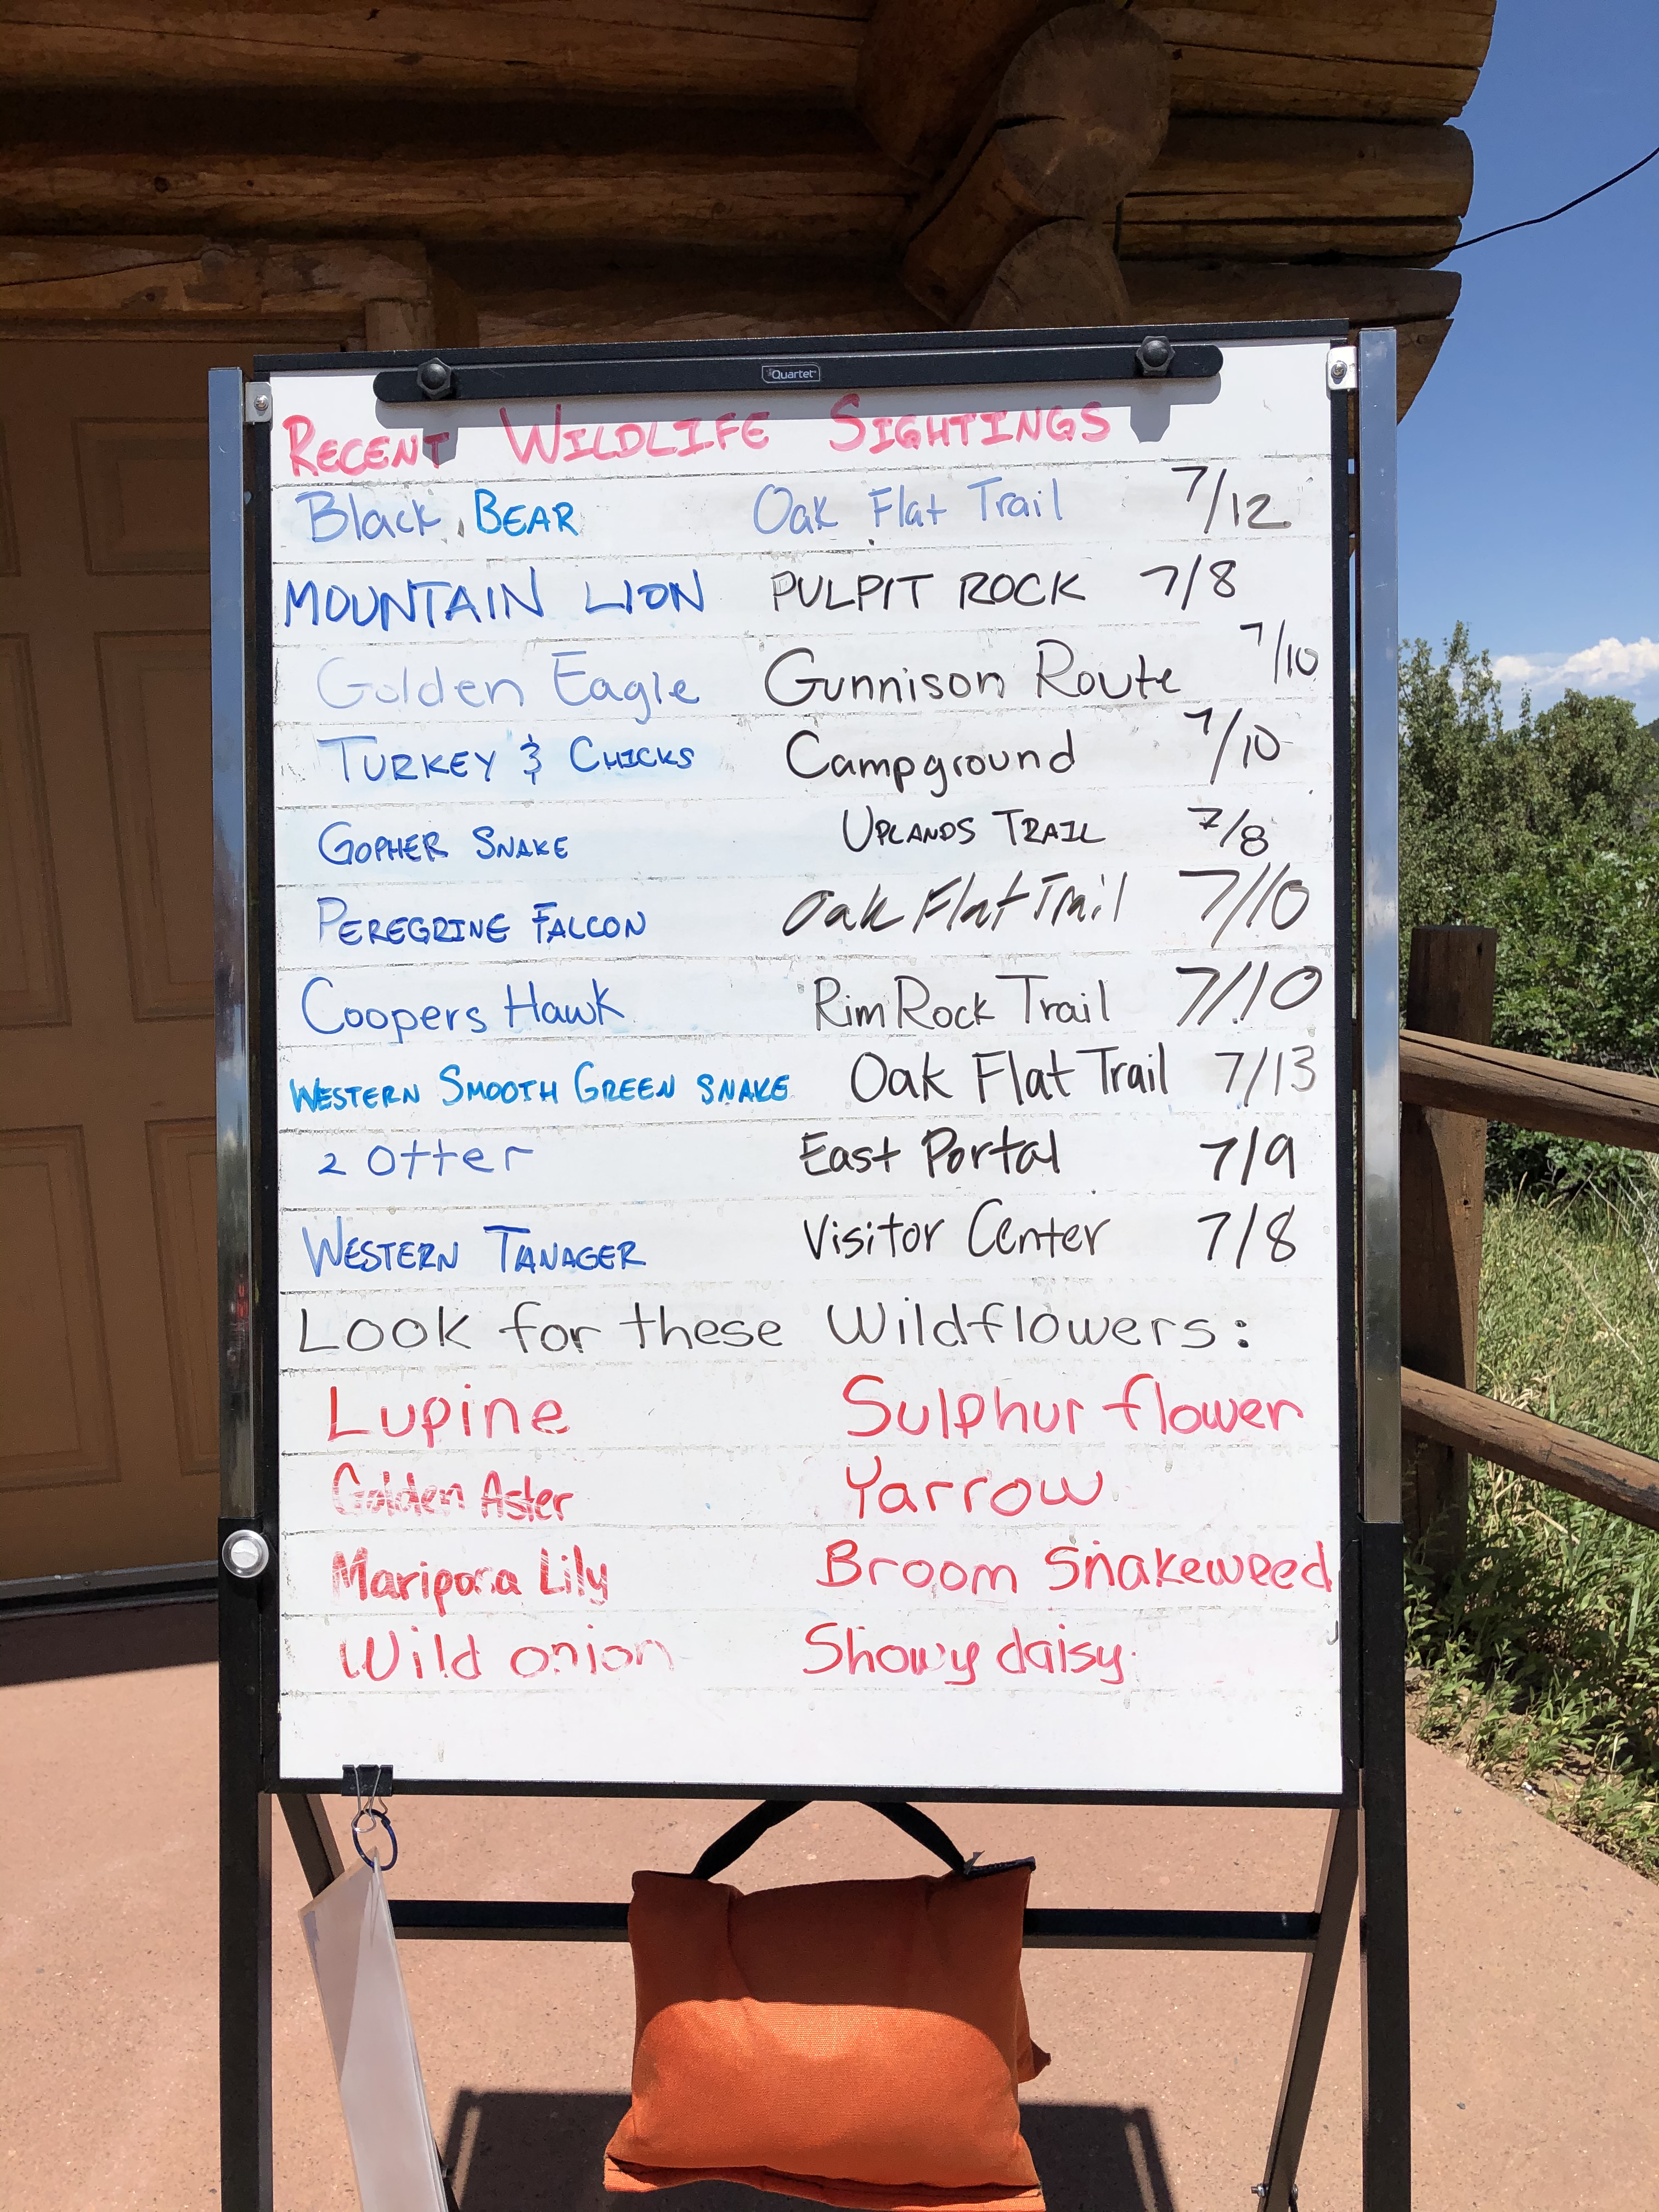 Quartet
RECENT WILDLIFE SIGHTINGS
Black BEAR Oak Flat Trail 7/12
MOUNTAIN LION PULPIT ROCK 7/8
Golden Eagle Gunnison Route 7/10
TURKEY & CHICKS Campground 7/10
GOPHER SNAKE UPLANDS TRAIL 7/8
PEREGRINE FALCON Oak Flat Trail 7/10
Coopers Hawk Rim Rock Trail 7/10
WESTERN SMOOTH GREEN SNAKE Oak Flat Trail 7/13
2 Otter East Portal 7/9
WESTERN TANAGER Visitor Center 7/8
Look for these Wildflowers:
Lupine Sulphur flower
Golden Aster Yarrow
Mariposa Lily Broom Snakeweed
Wild onion Showy daisy